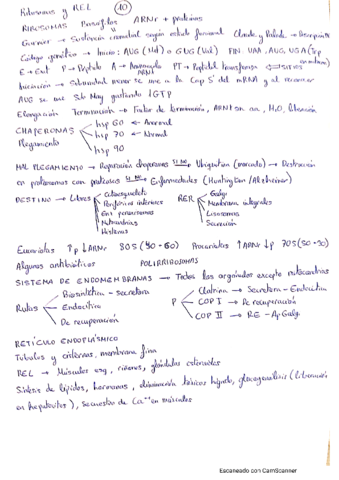 Ribosomas y REL 10
RIBOSOMAS ARNr + proteínas
Garnier → Sustancia cromidial según estado funcional Claude y Palade → Descripción
Código genético → Inicio: AUG (Met) o GUG (Val) FIN UAA, AUG, UGA (Trp
E → Exit P → Peptido A → Aminoacido PT → Peptidil transferasa → SITIOS
ARNt
Iniciación → Subunidad menor se une a la Cap 5' del mRNA y al reconocer
AUG se une Sub May gastando 1GTP
Elongación Terminación → Factor de terminación, ARNt sin aa, H2O, liberación
CHAPERONAS hsp 60 ← Anormal
Plegamiento hsp 70 ← Normal
hsp 90
MAL PLEGAMIENTO → Reparación chaperonas SI NO Ubiquitina (marcado) → Destrucción
en proteosomas con proteasas SI NO Enfermedades (Huntington / Alzheimer)
DESTINO → Libres Citoesqueleto RER Golgi
Periféricas interiores Membrana integrales
En peroxisomas Lisosomas
Mitocondrias Secreción
Histonas
Eucariotas ↑p ↓ARNr 80S (40-60) Procariotas ↑ARNr ↓p 70S (50-30)
Algunos antibióticos POLIRRIBOSOMAS
SISTEMA DE ENDOMEMBRANAS → Todos los orgánulos excepto mitocondrias
Rutas Biosintética - Secretora P Clatrina → Secretora - Endocítica
Endocítica COP I → De recuperación
De recuperación COP II → RE - Ap Golgi
RETÍCULO ENDOPLÁSMICO
Túbulos y cisternas, membrana fina
REL → Músculos esq, riñones, glándulas esteroides
Síntesis de lípidos, hormonas, eliminación tóxicos hígado, glucogenólisis (liberación
en hepatocitos), Secuestro de Ca++ en músculos
Escaneado con CamScanner